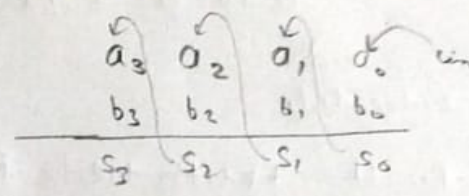 a₃ a₂ a₁ a₀
b₃ b₂ b₁ b₀
S₃ S₂ S₁ S₀